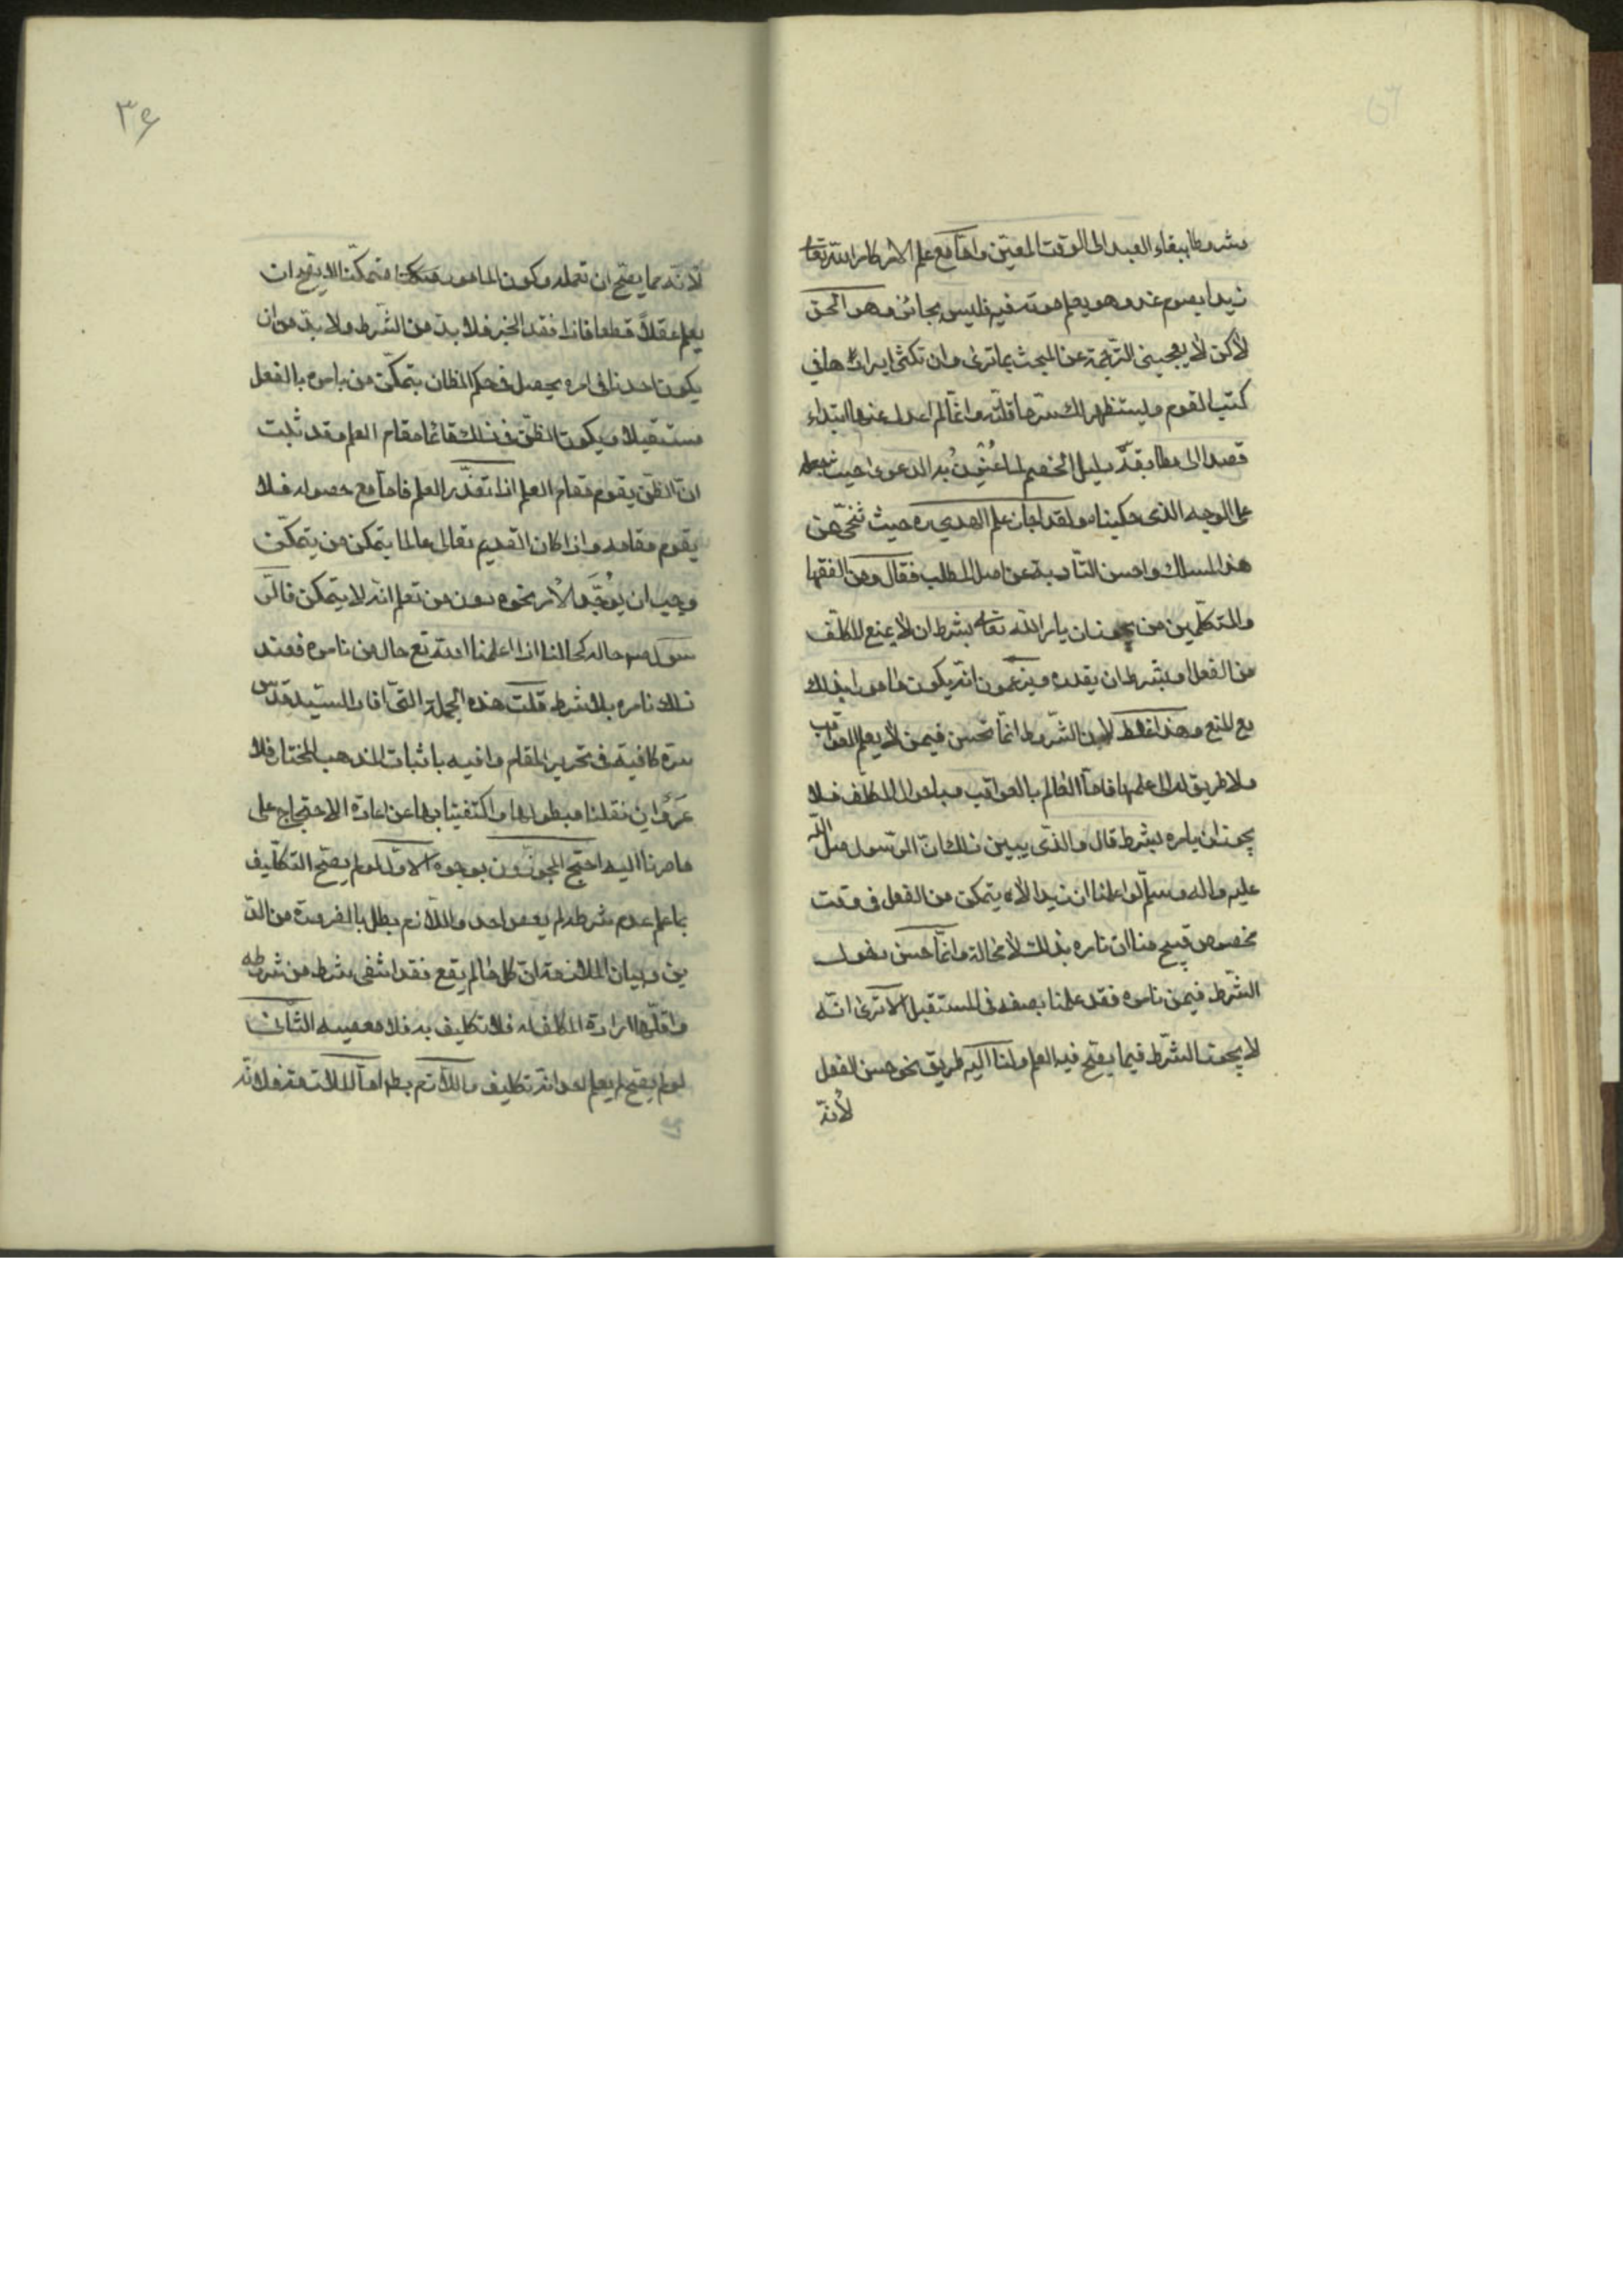 مشروطا ببقاء العبد الى الوقت المعين واما مع علم الامر كامر الله تعالى
زيدا بصوم غد وهو يعلم موته فيه فليس بجائز وهو الحق
لاكن لا يعجبني الترجمة عن المبحث بما ترى وان تكثر ايرادها في
كتب القوم وليستظهر لك سر ما قلته وانما لم اعدل عنها ابتداء
قصدا الى مطابقة دليل الخصم لما عنون به الدعوى حيث
على الوجه الذي حكيناه ولقد اجاد علم الهدى ره حيث تنحى عن
هذا المسلك واحسن التأدية عن اصل المطلب فقال ومن الفقها
والمتكلمين من يجوز ان يامر الله تعالى بشرط ان لا يمنع المكلف
من الفعل او بشرط ان يقدره ويزعمون انه يكون مامورا بذلك
مع المنع وهذا غلط لان الشروط انما تحسن فيمن لا يعلم العواقب
ولا طريق له الى علمها فاما العالم بالعواقب وباحوال المكلف فلا
يجوز ان يامره بشرط قال والذى يبين ذلك ان الرسول صلى الله
عليه واله وسلم لو اعلمنا ان زيدا لا يتمكن من الفعل فى وقت
مخصوص قبح منا ان نامره بذلك لا محالة وانما حسن دخول
الشرط فيمن نامره فقد علمنا بصفته فى المستقبل الا ترى انه
لا يجوز الشرط فيما يصح فيه العلم ولنا اليه طريق نحو حسن الفعل
لانه
٣۶
لانه مما يصح ان نعلمه وكون المامور متمكنا لا يصح ان
يعلم عقلا قطعا فاذا فقد الخبر فلا بد من الشرط ولا بد من ان
يكون احدنا فى امره يحصل فى حكم الظان بتمكن من يامره بالفعل
مستقبلا ويكون الظن فى ذلك قائما مقام العلم وقد ثبت
ان الظن يقوم مقام العلم اذا تعذر العلم فاما مع حصوله فلا
يقوم مقامه واذا كان القديم تعالى عالما بتمكن من يتمكن
وجب ان يوجه الامر نحوه دون من تعلم انه لا يتمكن فالر
سول ص حاله كحالنا اذا اعلمنا الله تع حال من نامره فعند
ذلك نامره بلا شرط قلت هذه الجملة التى افادها السيد قدس
سره كافية فى تحرير المقام وافيه باثبات المذهب المختار فلا
غرو ان نقلناها بطولها واكتفينا بها عن اعادة الاحتجاج على
ما صرنا اليه احتج المجوزون بوجوه الاول لو لم يصح التكليف
بما علم عدم شرطه لم يعص احد واللازم بطل بالضرورة من الد
ين وبيان الملازمة ان كل ما لم يقع فقد انتفى شرط من شروطه
واقلها ارادة المكلف له فلا تكليف به فلا معصيه الثانى
لو لم يصح لم يعلم احد انه تكليف واللازم بط اما الملازمة فلانه